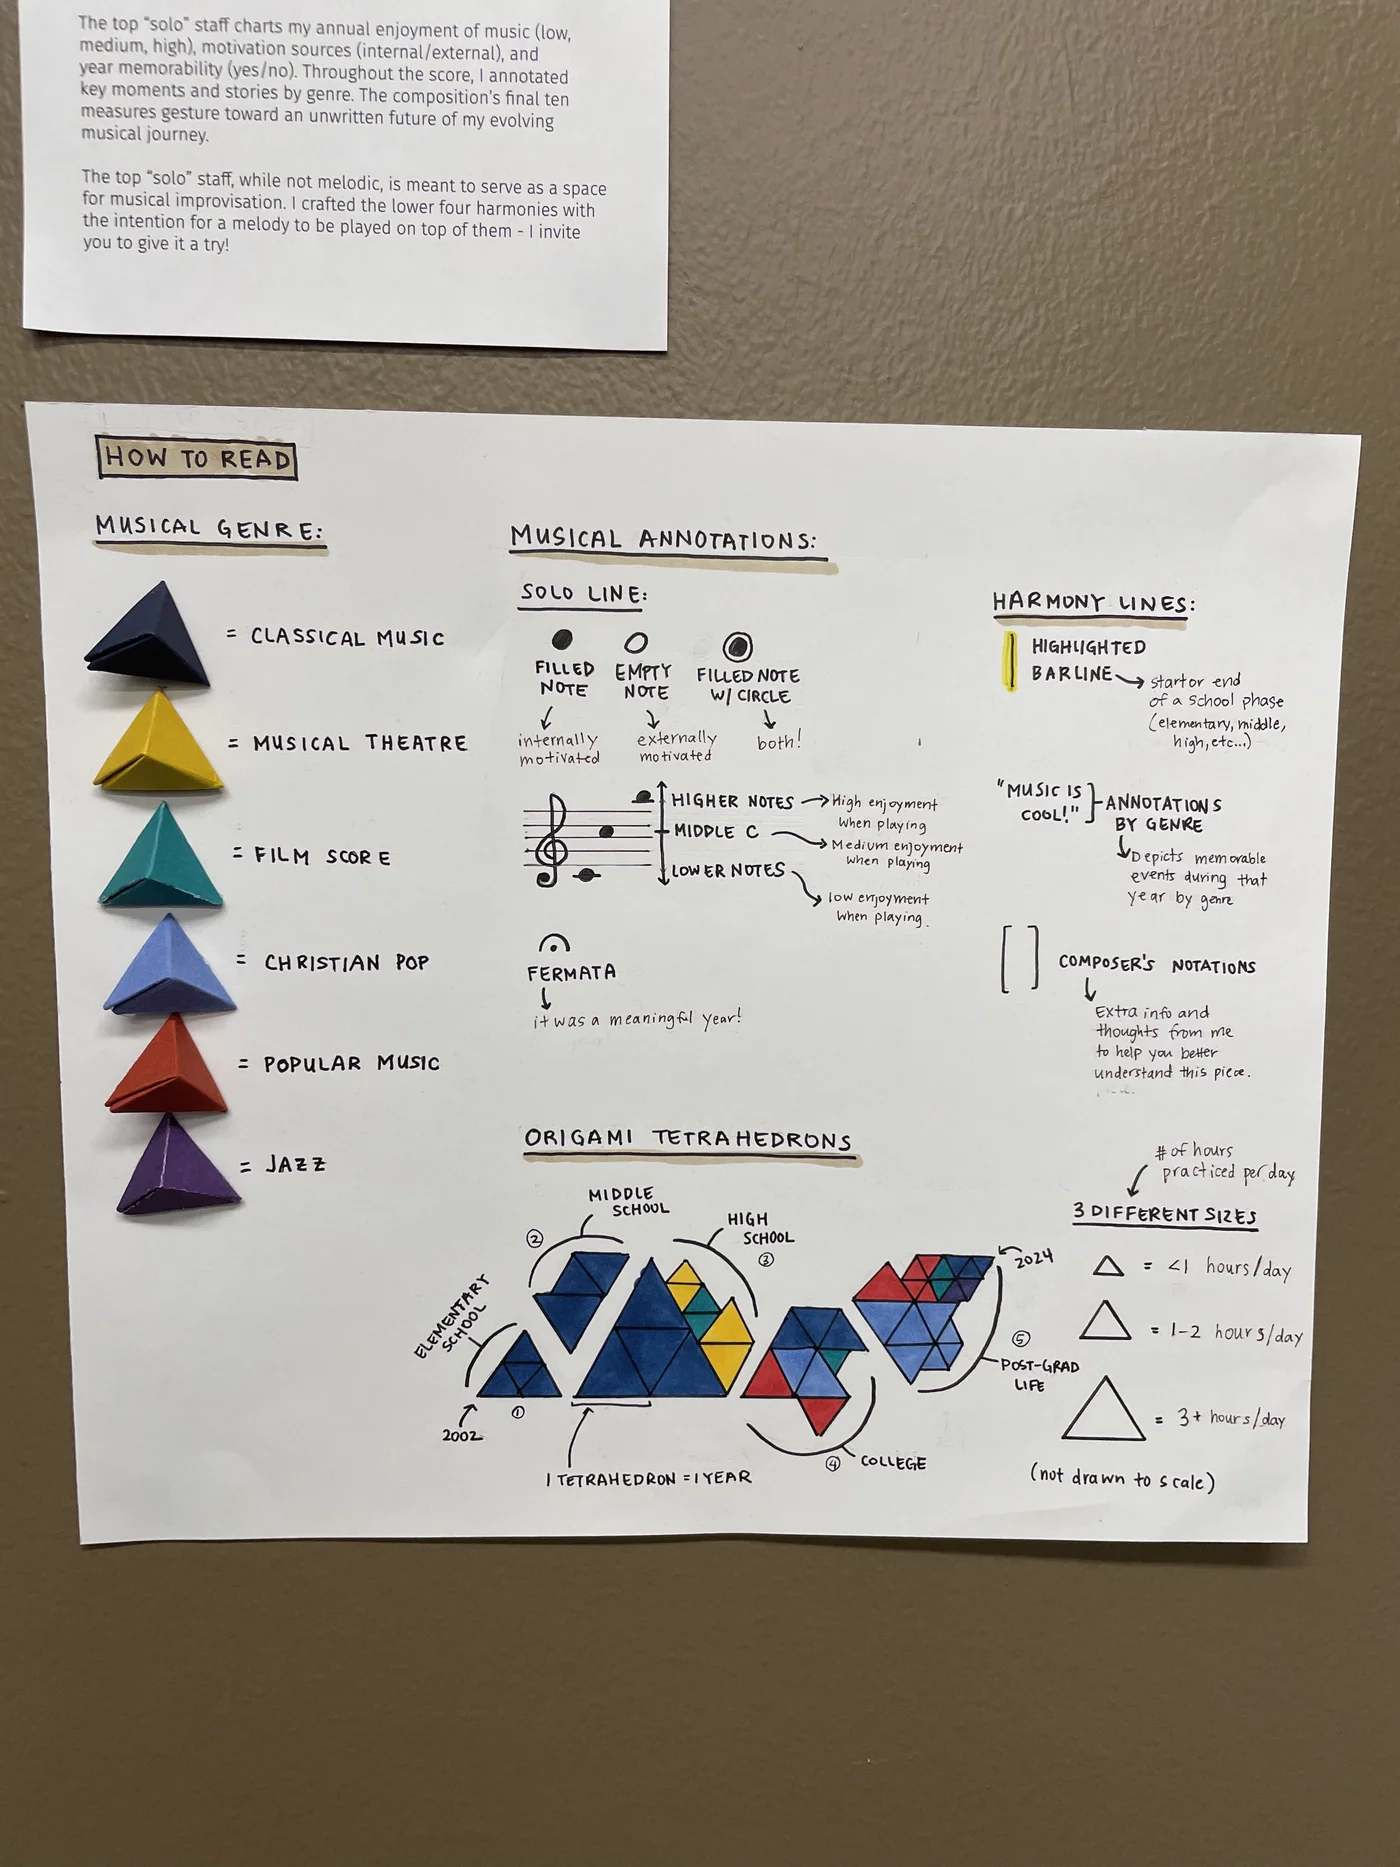 The top “solo” staff charts my annual enjoyment of music (low,
medium, high), motivation sources (internal/external), and
year memorability (yes/no). Throughout the score, I annotated
key moments and stories by genre. The composition's final ten
measures gesture toward an unwritten future of my evolving
musical journey.
The top “solo” staff, while not melodic, is meant to serve as a space
for musical improvisation. I crafted the lower four harmonies with
the intention for a melody to be played on top of them - I invite
you to give it a try!
HOW TO READ
MUSICAL GENRE:
= CLASSICAL MUSIC
= MUSICAL THEATRE
= FILM SCORE
= CHRISTIAN POP
= POPULAR MUSIC
= JAZZ
MUSICAL ANNOTATIONS:
SOLO LINE:
FILLED
NOTE
internally
motivated
EMPTY
NOTE
externally
motivated
FILLED NOTE
W/ CIRCLE
both!
HIGHER NOTES
High enjoyment
when playing
MIDDLE C
Medium enjoyment
when playing
LOWER NOTES
low enjoyment
when playing.
FERMATA
it was a meaningful year!
HARMONY LINES:
HIGHLIGHTED
BARLINE
start or end
of a school phase
(elementary, middle,
high, etc...)
"MUSIC IS
COOL!"
ANNOTATIONS
BY GENRE
Depicts memorable
events during that
year by genre
[ ] COMPOSER'S NOTATIONS
Extra info and
thoughts from me
to help you better
understand this piece.
ORIGAMI TETRAHEDRONS
ELEMENTARY
SCHOOL
1
2002
MIDDLE
SCHOOL
2
HIGH
SCHOOL
3
1 TETRAHEDRON = 1 YEAR
4 COLLEGE
2024
5
POST-GRAD
LIFE
# of hours
practiced per day
3 DIFFERENT SIZES
= <1 hours/day
= 1-2 hours/day
= 3+ hours/day
(not drawn to scale)